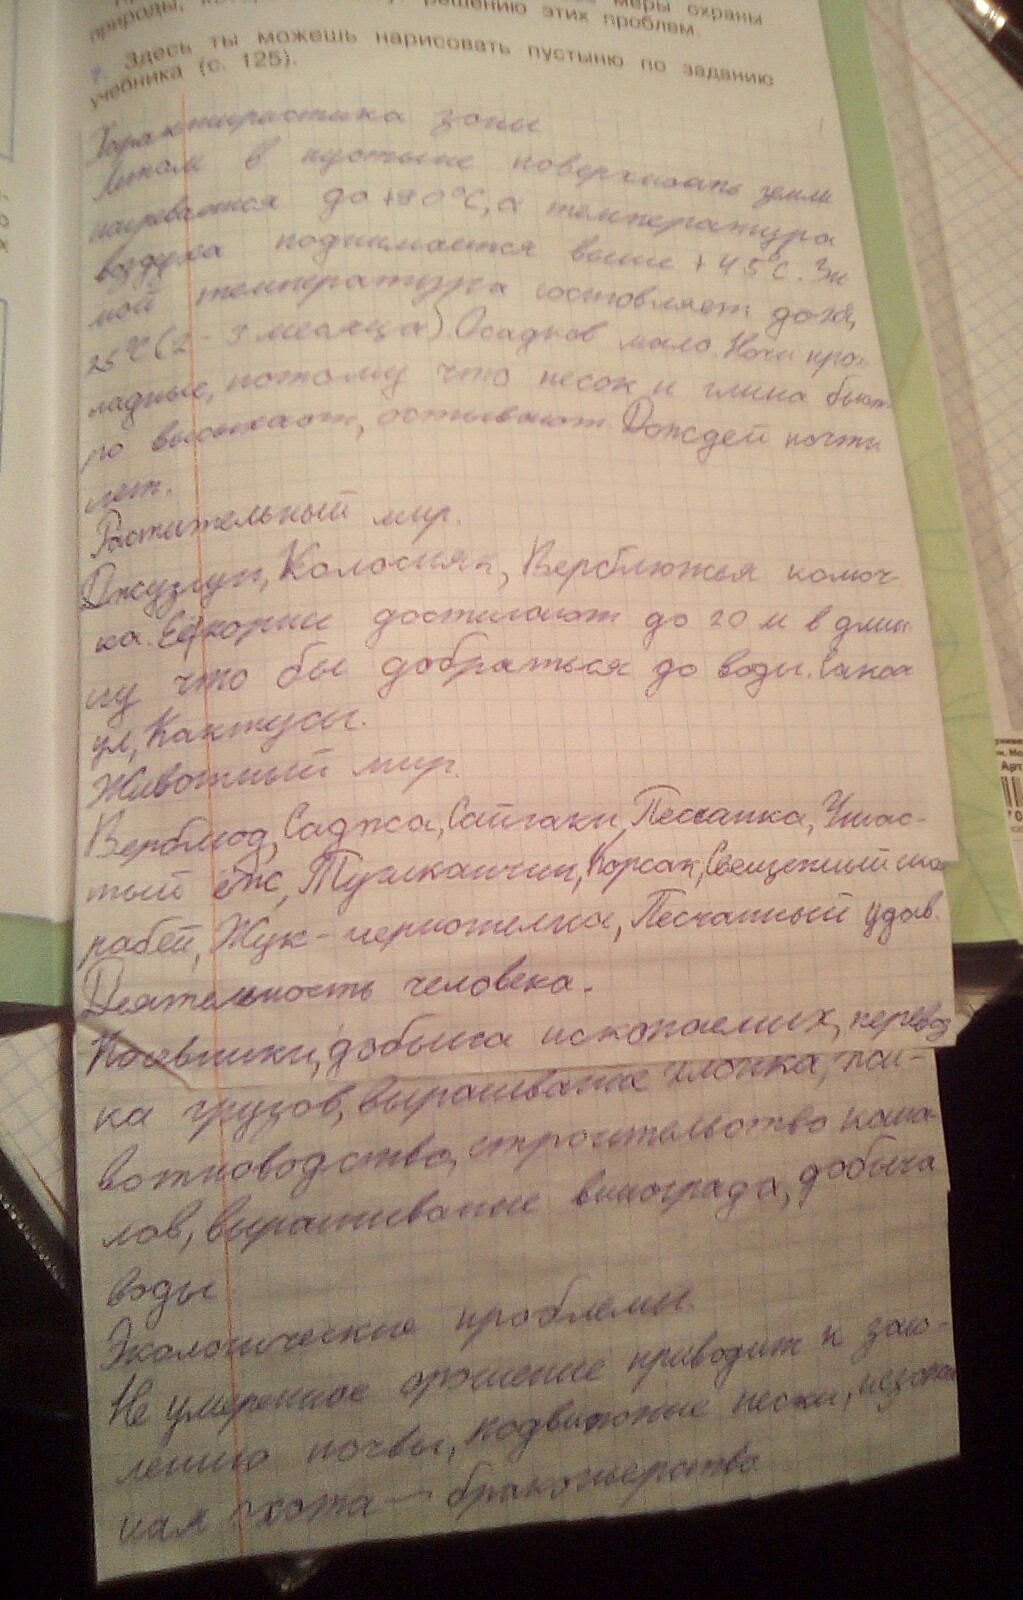 меры охраны
природы, решению этих проблем.
7. Здесь ты можешь нарисовать пустыню по заданию
учебника (с. 125).
зоны
Летом в пустыне поверхность земли
нагревается до +80°С, а температура
воздуха поднимается выше +45°С. Зи
мой температура составляет до
25°С (2-3 месяца). Осадков мало. Ночи прох
ладные, потому что песок и глина быст
ро высыхают, остывают. Дождей почти
нет.
Растительный мир.
Джузгун, Колосняк, Верблюжья колюч-
ка. Её корни достигают до 20 м в длин
ну что бы добраться до воды. Сакса
ул, Кактусы.
Животный мир.
Верблюд, Саджа, Сайгаки, Песчанка, Ушас-
тый ёж, Тушканчик, Корсак, Священный ска
рабей, Жук-чернотелка, Песчаный удав.
Деятельность человека.
Кочевники, добыча ископаемых, перевоз
ка грузов, выращивание хлопка,
вотноводство, строительство кана
лов, выращивание винограда, добыча
воды
Экологические проблемы.
Не умеренное орошение приводит к засо-
лению почвы, подвижные пески, незакон
ная охота - браконьерство.
Арт